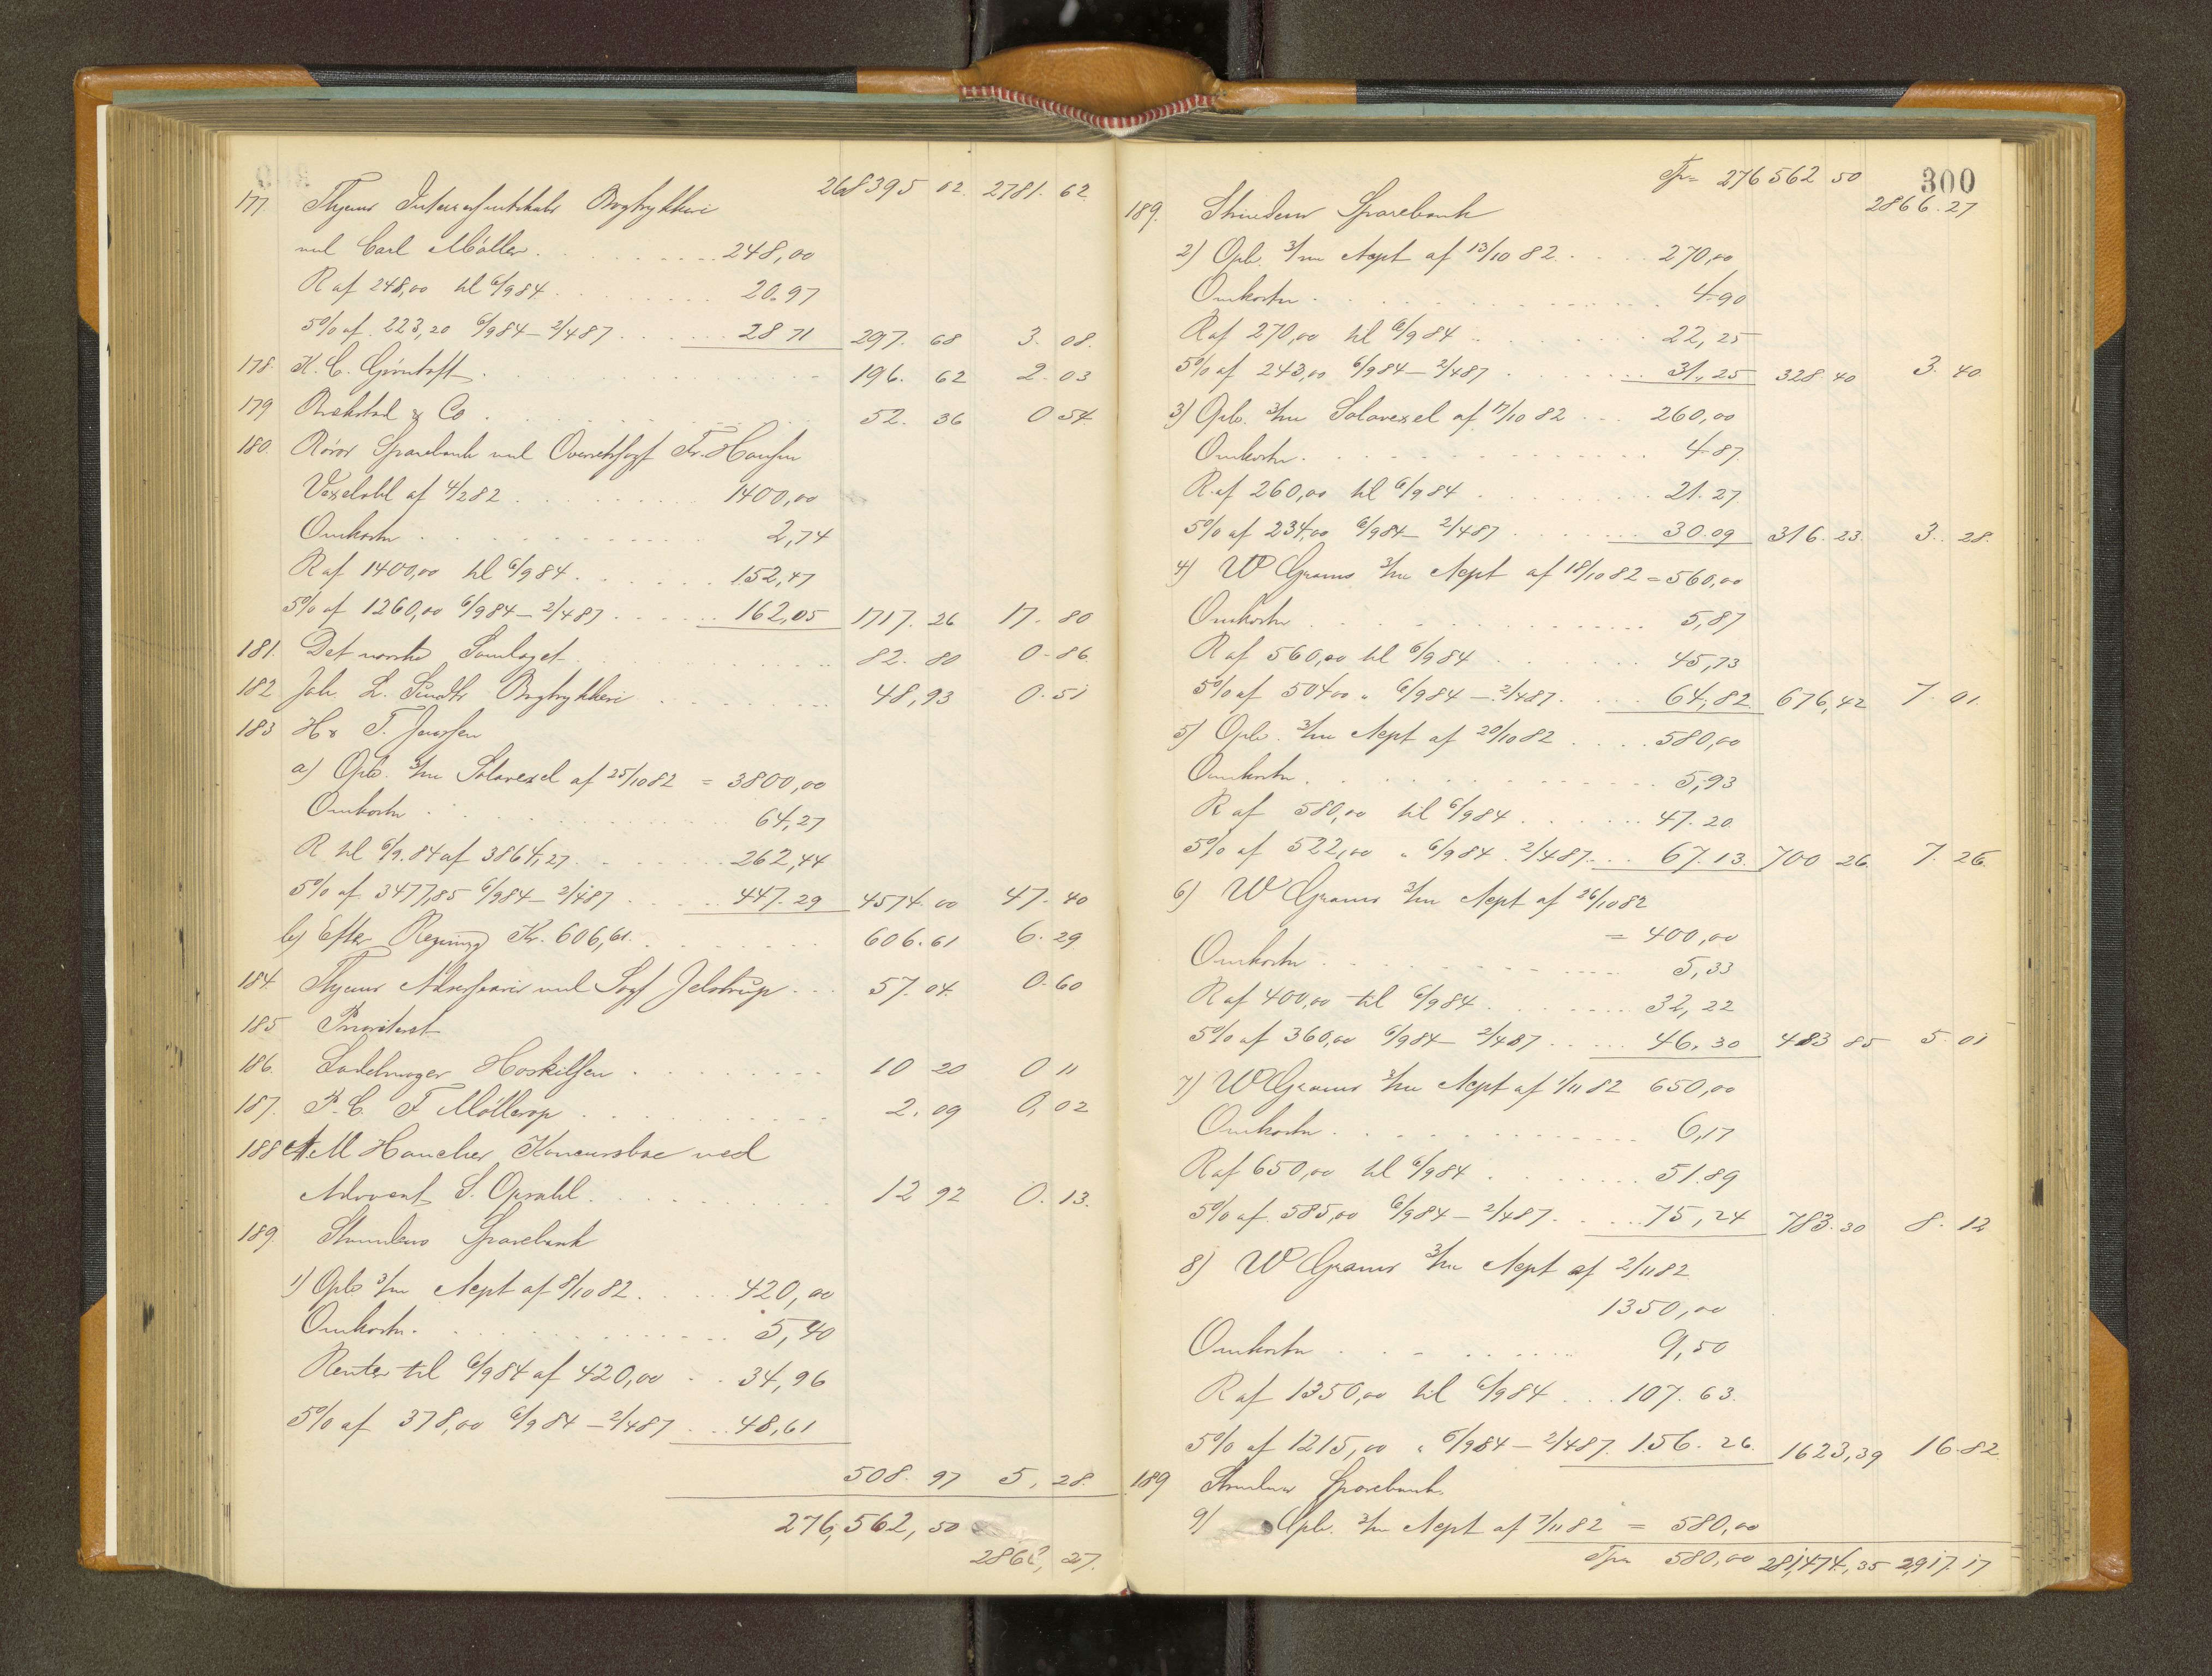 268395 02 2781. 62
177. Thjems Interessentskabs Bogtrykkeri
ved Carl Müller . . . 248,00
R af 248,00 til 6/9 84 . . . 20.97
5% af 223,20 6/9 84 – 2/4 87 . . . 28 71 297. 68 3. 08.
178. K. C. Gjörntoft . . . 196. 62 2. 03
179 Brækstad & Co . . . 52. 36 0 54.
180. Röros Sparebank ved Overretssagf Fr. Hansen
Vexelobl af 4/2 82 . . . 1400,00
Omkostn . . . 2,74
R af 1400,00 til 6/9 84 . . . 152,47
5% af 1260,00 6/9 84 – 2/4 87 . . . 162,05 1717. 26 17. 80
181. Det norske Samlaget . . . 82. 80 0. 86.
182 Joh. L. Sundts Bogtrykkeri . . . 48,93 0. 51
183 H & T. Jenssen
a) Opb. 3/m Solavexel af 25/10 82 = 3800,00
Omkostn . . . 64,27
R til 6/9. 84 af 3864,27 . . . 262,44
5% af 3477,85 6/9 84 – 2/4 87 . . . 447. 29 4574. 00 47. 40
b) Efter Regning Kr. 606,61. . . . 606. 61 6. 29
184. Thjems Adresseavis ved Sagf Jelstrup . . . 57. 04. 0. 60
185 Prioriteret
186. Sadelmager Hoskilsen . . . 10 20 0 11
187. P. C. F Möllerop . . . 2. 09 0,02
188 A. M Hanches Konkursbo ved
Advocat S. Opsahl . . . 12 92 0. 13.
189. Strindens Sparebank
1) Opb 3/m Acpt af 8/10 82 . . . 420,00
Omkostn. . . . 5,40
Renter til 6/9 84 af 420,00 . . . 34,96
5% af 378,00 6/9 84 – 2/4 87 . . . 48,61
508. 97 5, 28.
276,562,50
2866, 27.
300
Tpr 276 562 50
2866. 27
189. Strindens Sparebank
2) Opb. 3/m Acpt af 13/10 82 . . . 270,00
Omkostn . . . 4.90
R af 270,00 til 6/9 84 . . . 22,25
5% af 243,00 6/9 84 – 2/4 87 . . . 31,25 328. 40 3. 40
3) Opb. 3/m Solavexel af 17/10 82 . . . 260,00
Omkostn. . . . 4.87
R af 260,00 til 6/9 84 . . . 21. 27
5% af 234,00 6/9 84 – 2/4 87 . . . 30.09 316. 23. 3. 28.
4) W Grams 3/m Acpt af 18/10 82 = 560,00
Omkostn . . . 5,87
R af 560,00 til 6/9 84 . . . 45,73
5% af 504 00 " 6/9 84 – 2/4 87. . . . 64,82 676,42 7. 01.
5) Opb. 3/m Acpt af 20/10 82 . . . 580,00
Omkostn. . . . 5,93
R af 580,00 til 6/9 84 . . . 47. 20
5% af 522,00 " 6/9 84 . 2/4 87 . . . 67. 13. 700 26. 7. 26.
6) W Grams 3/m Acpt af 26/10 82
= 400,00
Omkostn . . . 5,33
R af 400,00 til 6/9 84 . . . 32, 22
5% af 360,00 6/9 84 – 2/4 87 . . . 46. 30 483 85 5. 01
7) W Grams 3/m Acpt af 1/11 82 650,00
Omkostn . . . 6,17
R af 650,00 til 6/9 84 . . . 51.89
5% af 585,00 6/9 84 – 2/4 87. . . . 75,24 783. 30 8. 12
8) W Grams 3/m Acpt af 2/11 82
1350,00
Omkostn . . . 9,50
R af 1350,00 til 6/9 84 . . . 107. 63.
5% af 1215,00 " 6/9 84 – 2/4 87. 156. 26. 1623,39 16.82
189 Strindens Sparebank.
9) Opb. 3/m Acpt af 7/11 82 = 580,00
Tpr 580,00 281,474,35 2,917. 17